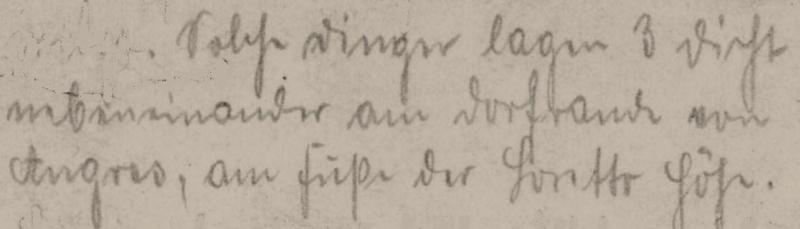 . Solche Dinger lagen 3 dicht
nebeneinander am Dorfrande von
Angres, am Fuße der Loretto Höhe.